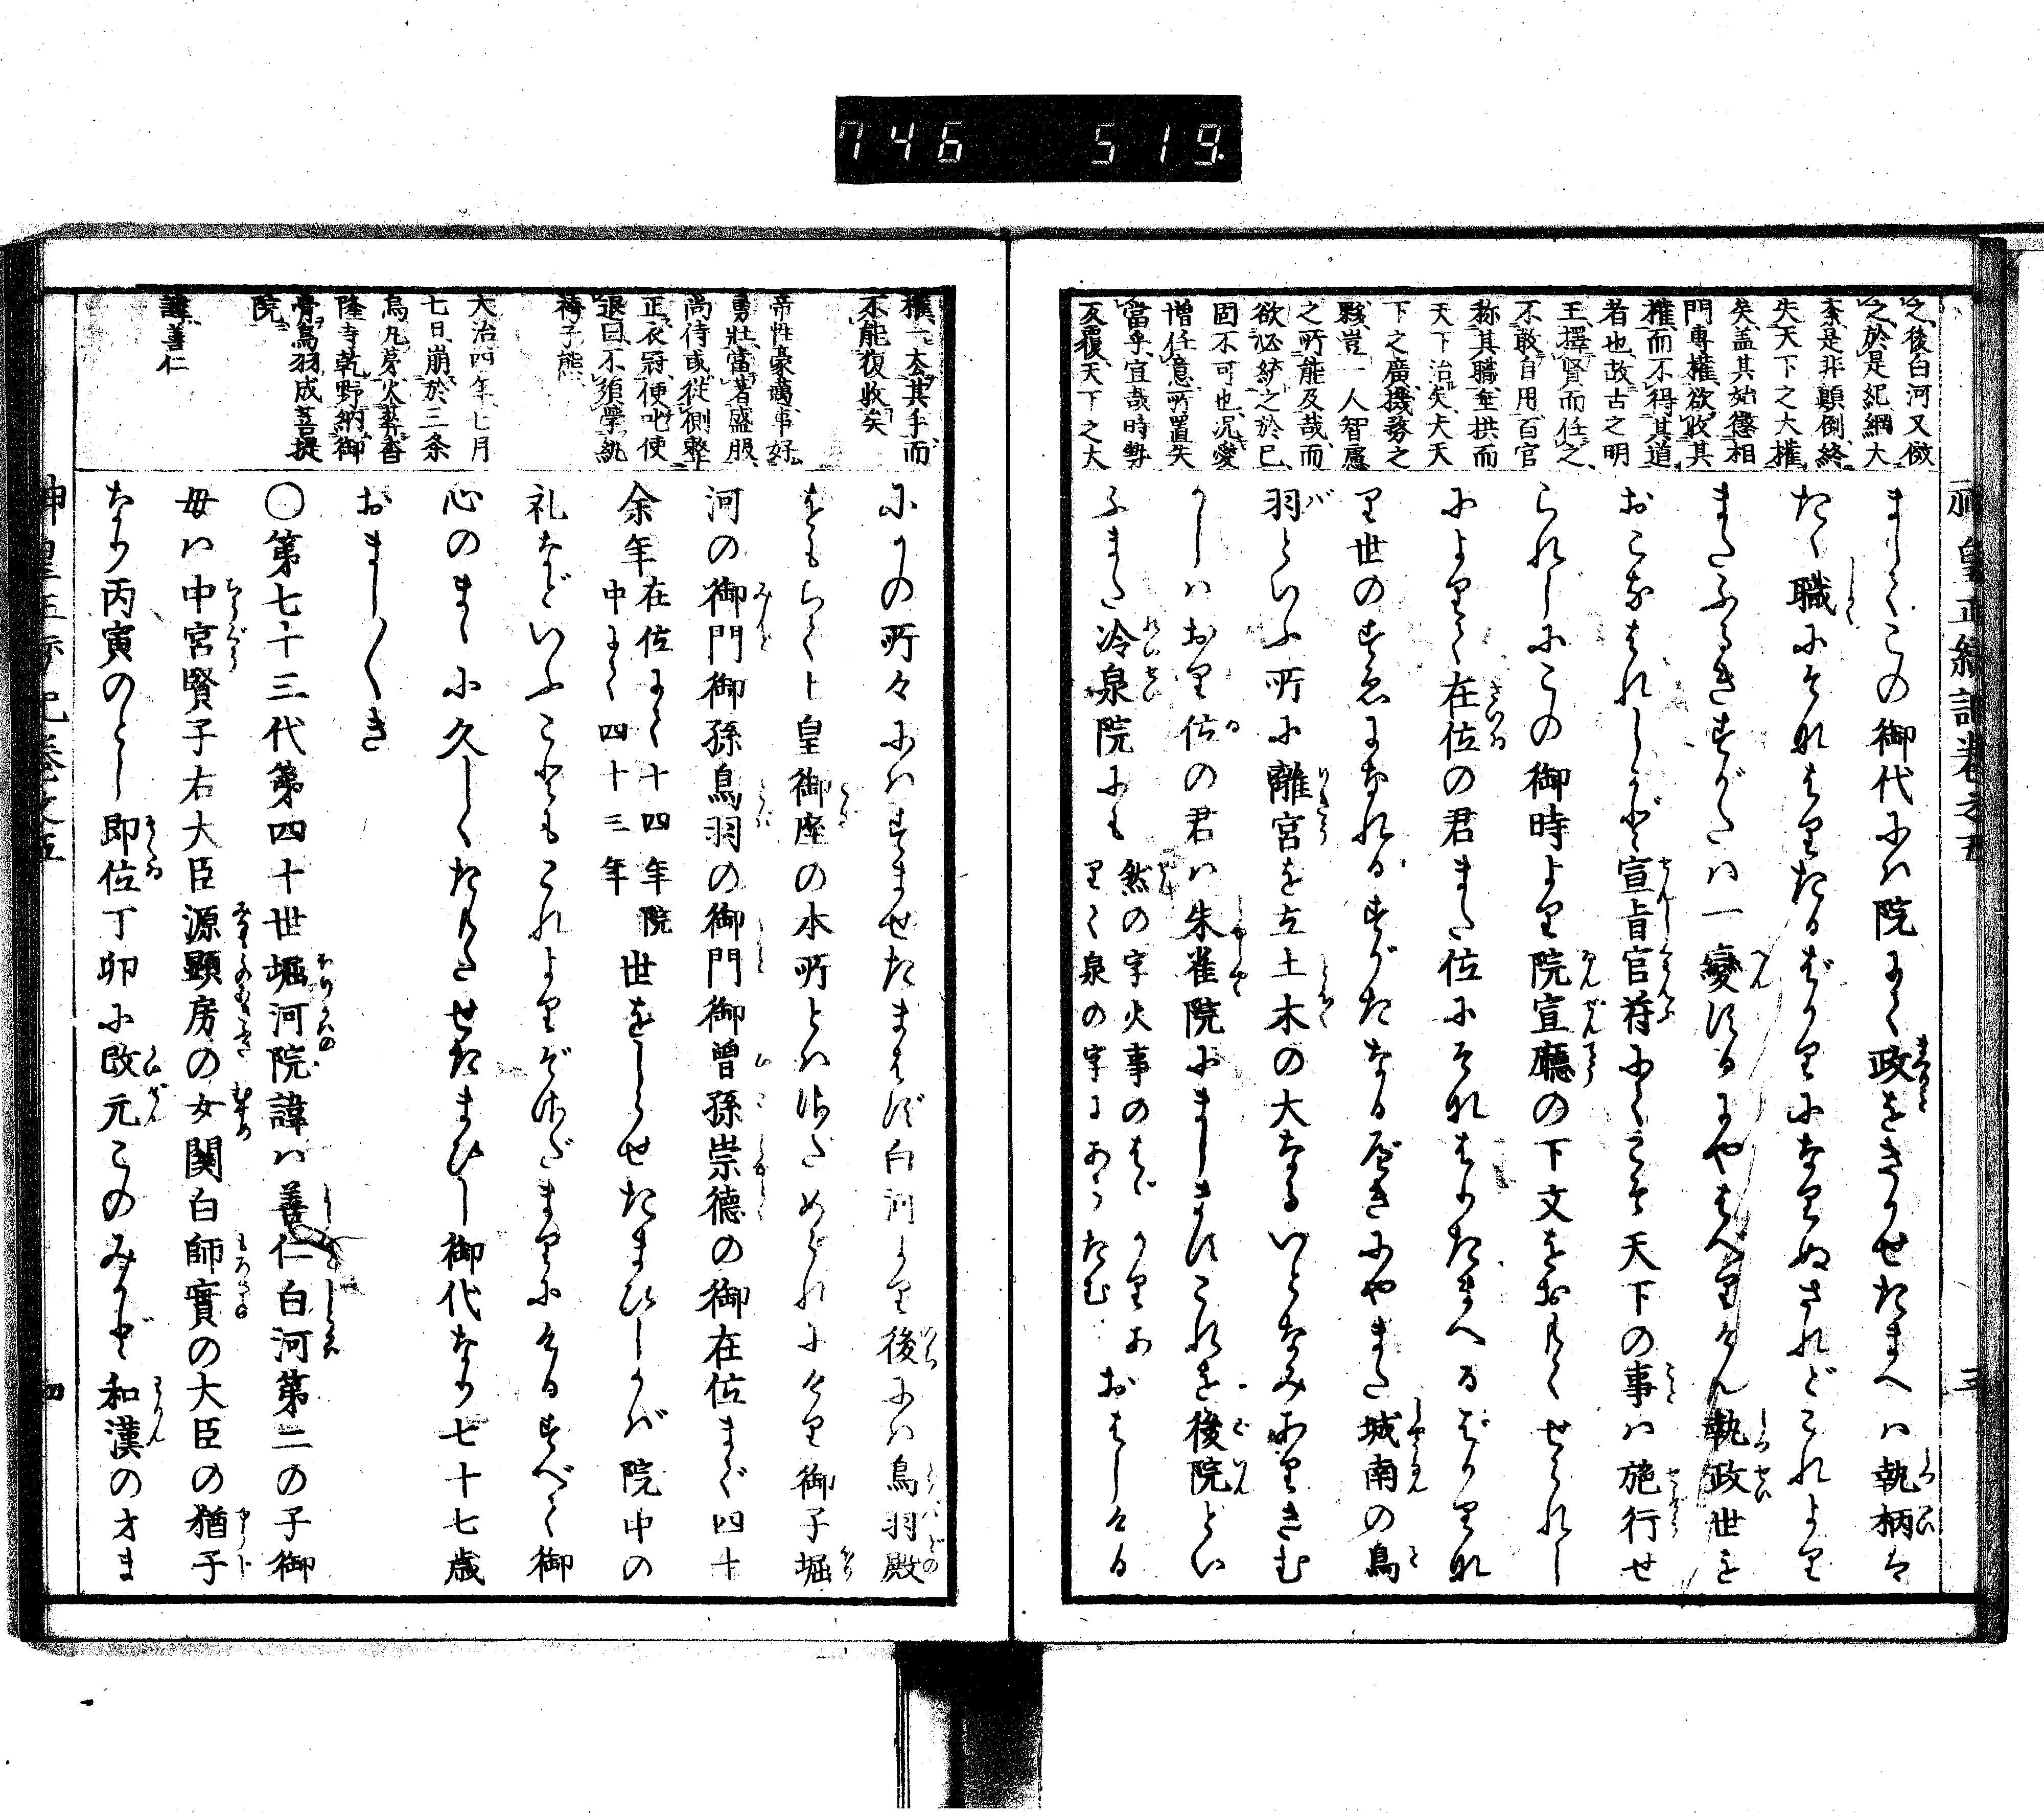 746 519.
神皇正統記巻之五
三
之後白河又倣
之於是紀綱大
紊是非顛倒終
失天下之大權
矣盖其始懲相
門專權欲收其
權而不得其道
者也故古之明
王擇賢而任之
不敢自用百官
称其職垂拱而
天下治矣夫天
下之廣機務之
夥豈一人智慮
之所能及哉而
欲必統之於已
固不可也况愛
憎任意所置失
當乎宜哉時勢
反覆天下之大
ましてこの御代にハ院にて政をきかせたまへハ執柄ハ
たゞ職にそなはりたるばかりになりぬされどこれより
またふるきすがたハ一變するにやはべりけん執政世を
おこなはれしかど宣旨官符にてこそ天下の事ハ施行せ
られしにこの御時より院宣廳の下文をおもくせられし
によりて在位の君また位にそなはりたまへるばかりな
り世のすゑになれるすがたなるべきにやまた城南の鳥
羽といふ所に離宮を立土木の大なるいとなみありきむ
かしハおり位の君ハ朱雀院にましますこれを後院とい
ふまた冷泉院にも
然の字火事のはゞかりあ
りて泉の字にあらたむ
おはしける
權一去其手而
不能復收矣
帝性豪邁事好
勇壯當著盛服
尚侍或従側整
正衣冠便叱使
退曰不須學紈
袴子態
大治四年七月
七日崩於三条
烏丸第火葬香
隆寺乾野納御
骨鳥羽成菩提
院
諱善仁
にかの所々にハすませたまはず白河より後にハ鳥羽殿
をもちて上皇御座の本所とハさだめられにけり御子堀
河の御門御孫鳥羽の御門御曽孫崇徳の御在位まで四十
余年
在位にて十四年院
中にて四十三年
世をしらせたまひしかば院中の
礼などいふこともこれよりぞさだまりにけるすべて御
心のまゝに久しくたもたせたまひし御代なり七十七歳
おましましき
〇第七十三代第四十世堀河院諱ハ善仁白河第二の子御
母ハ中宮賢子右大臣源顕房の女関白師實の大臣の猶子
なり丙寅のとし即位丁卯に改元このみかど和漢の才ま
神皇正統記巻之五
四